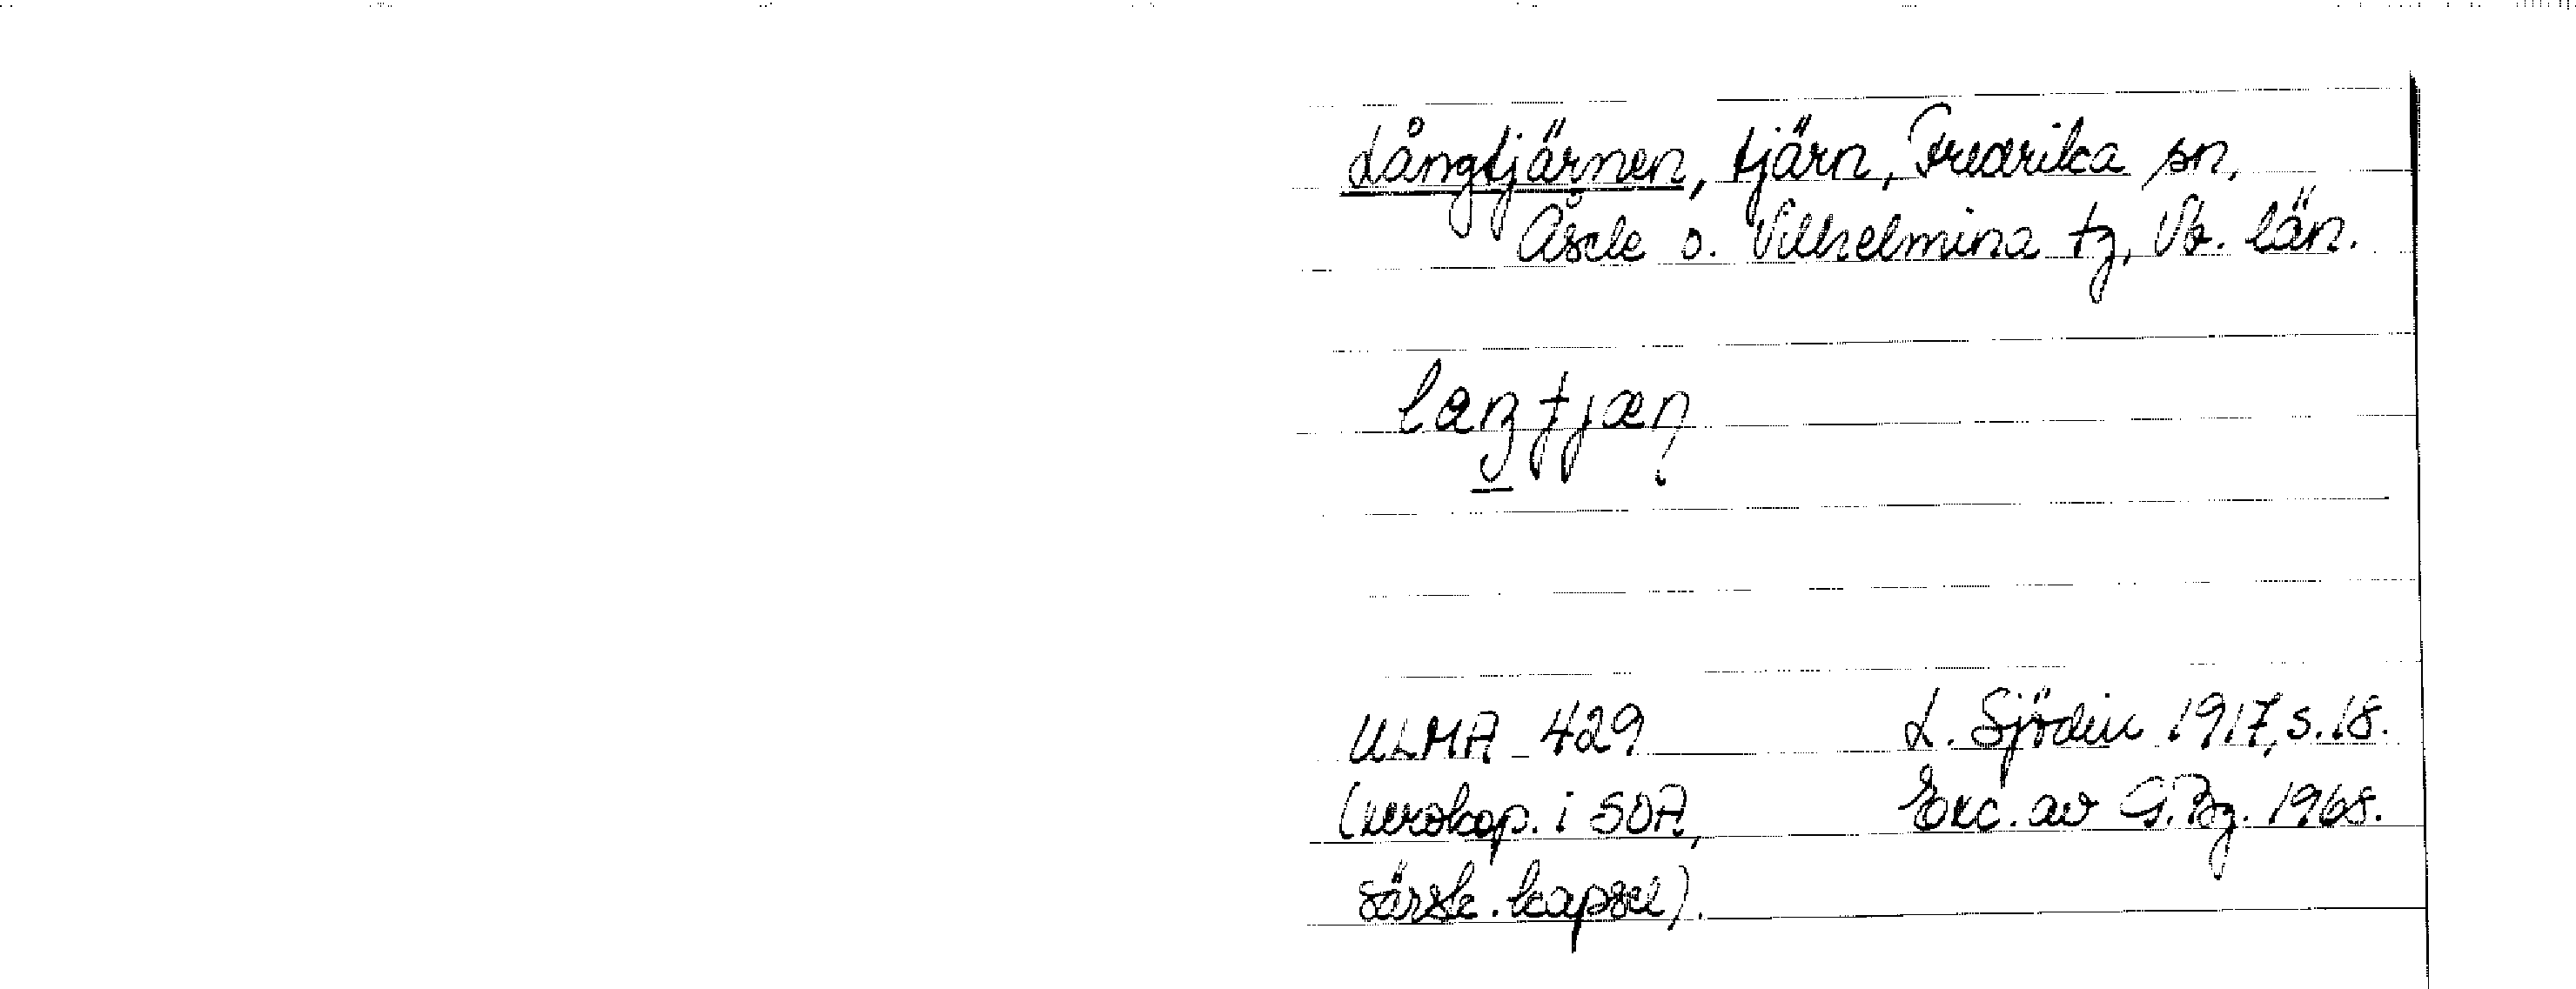 Långtjärnen, tjärn, Fredrika sn,
Åsele o. Vilhelmina tg, Vb. län.
ULMA 429 L. Sjödin 1917, s. 18.
(xerokop. i SOA, Exc. av G. Bg. 1968.
särsk. kapsel).